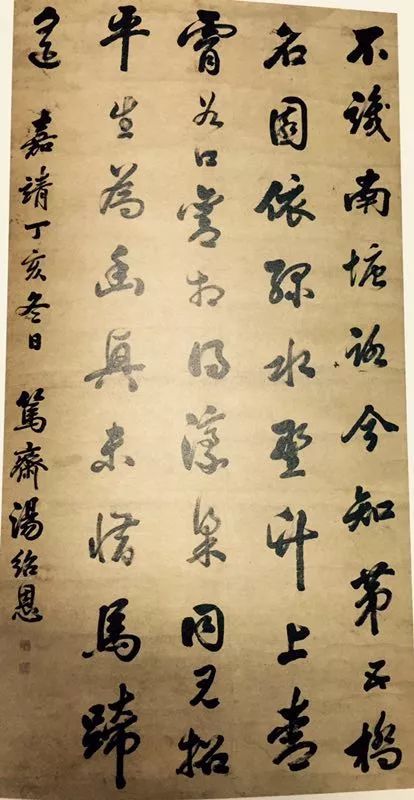 不識南塘路今知第五橋
名園依綠水野竹上青
霄谷口舊相得濠梁同見招
平生為幽興未惜馬蹄
遙 嘉靖丁亥冬日 篤齋湯紹恩